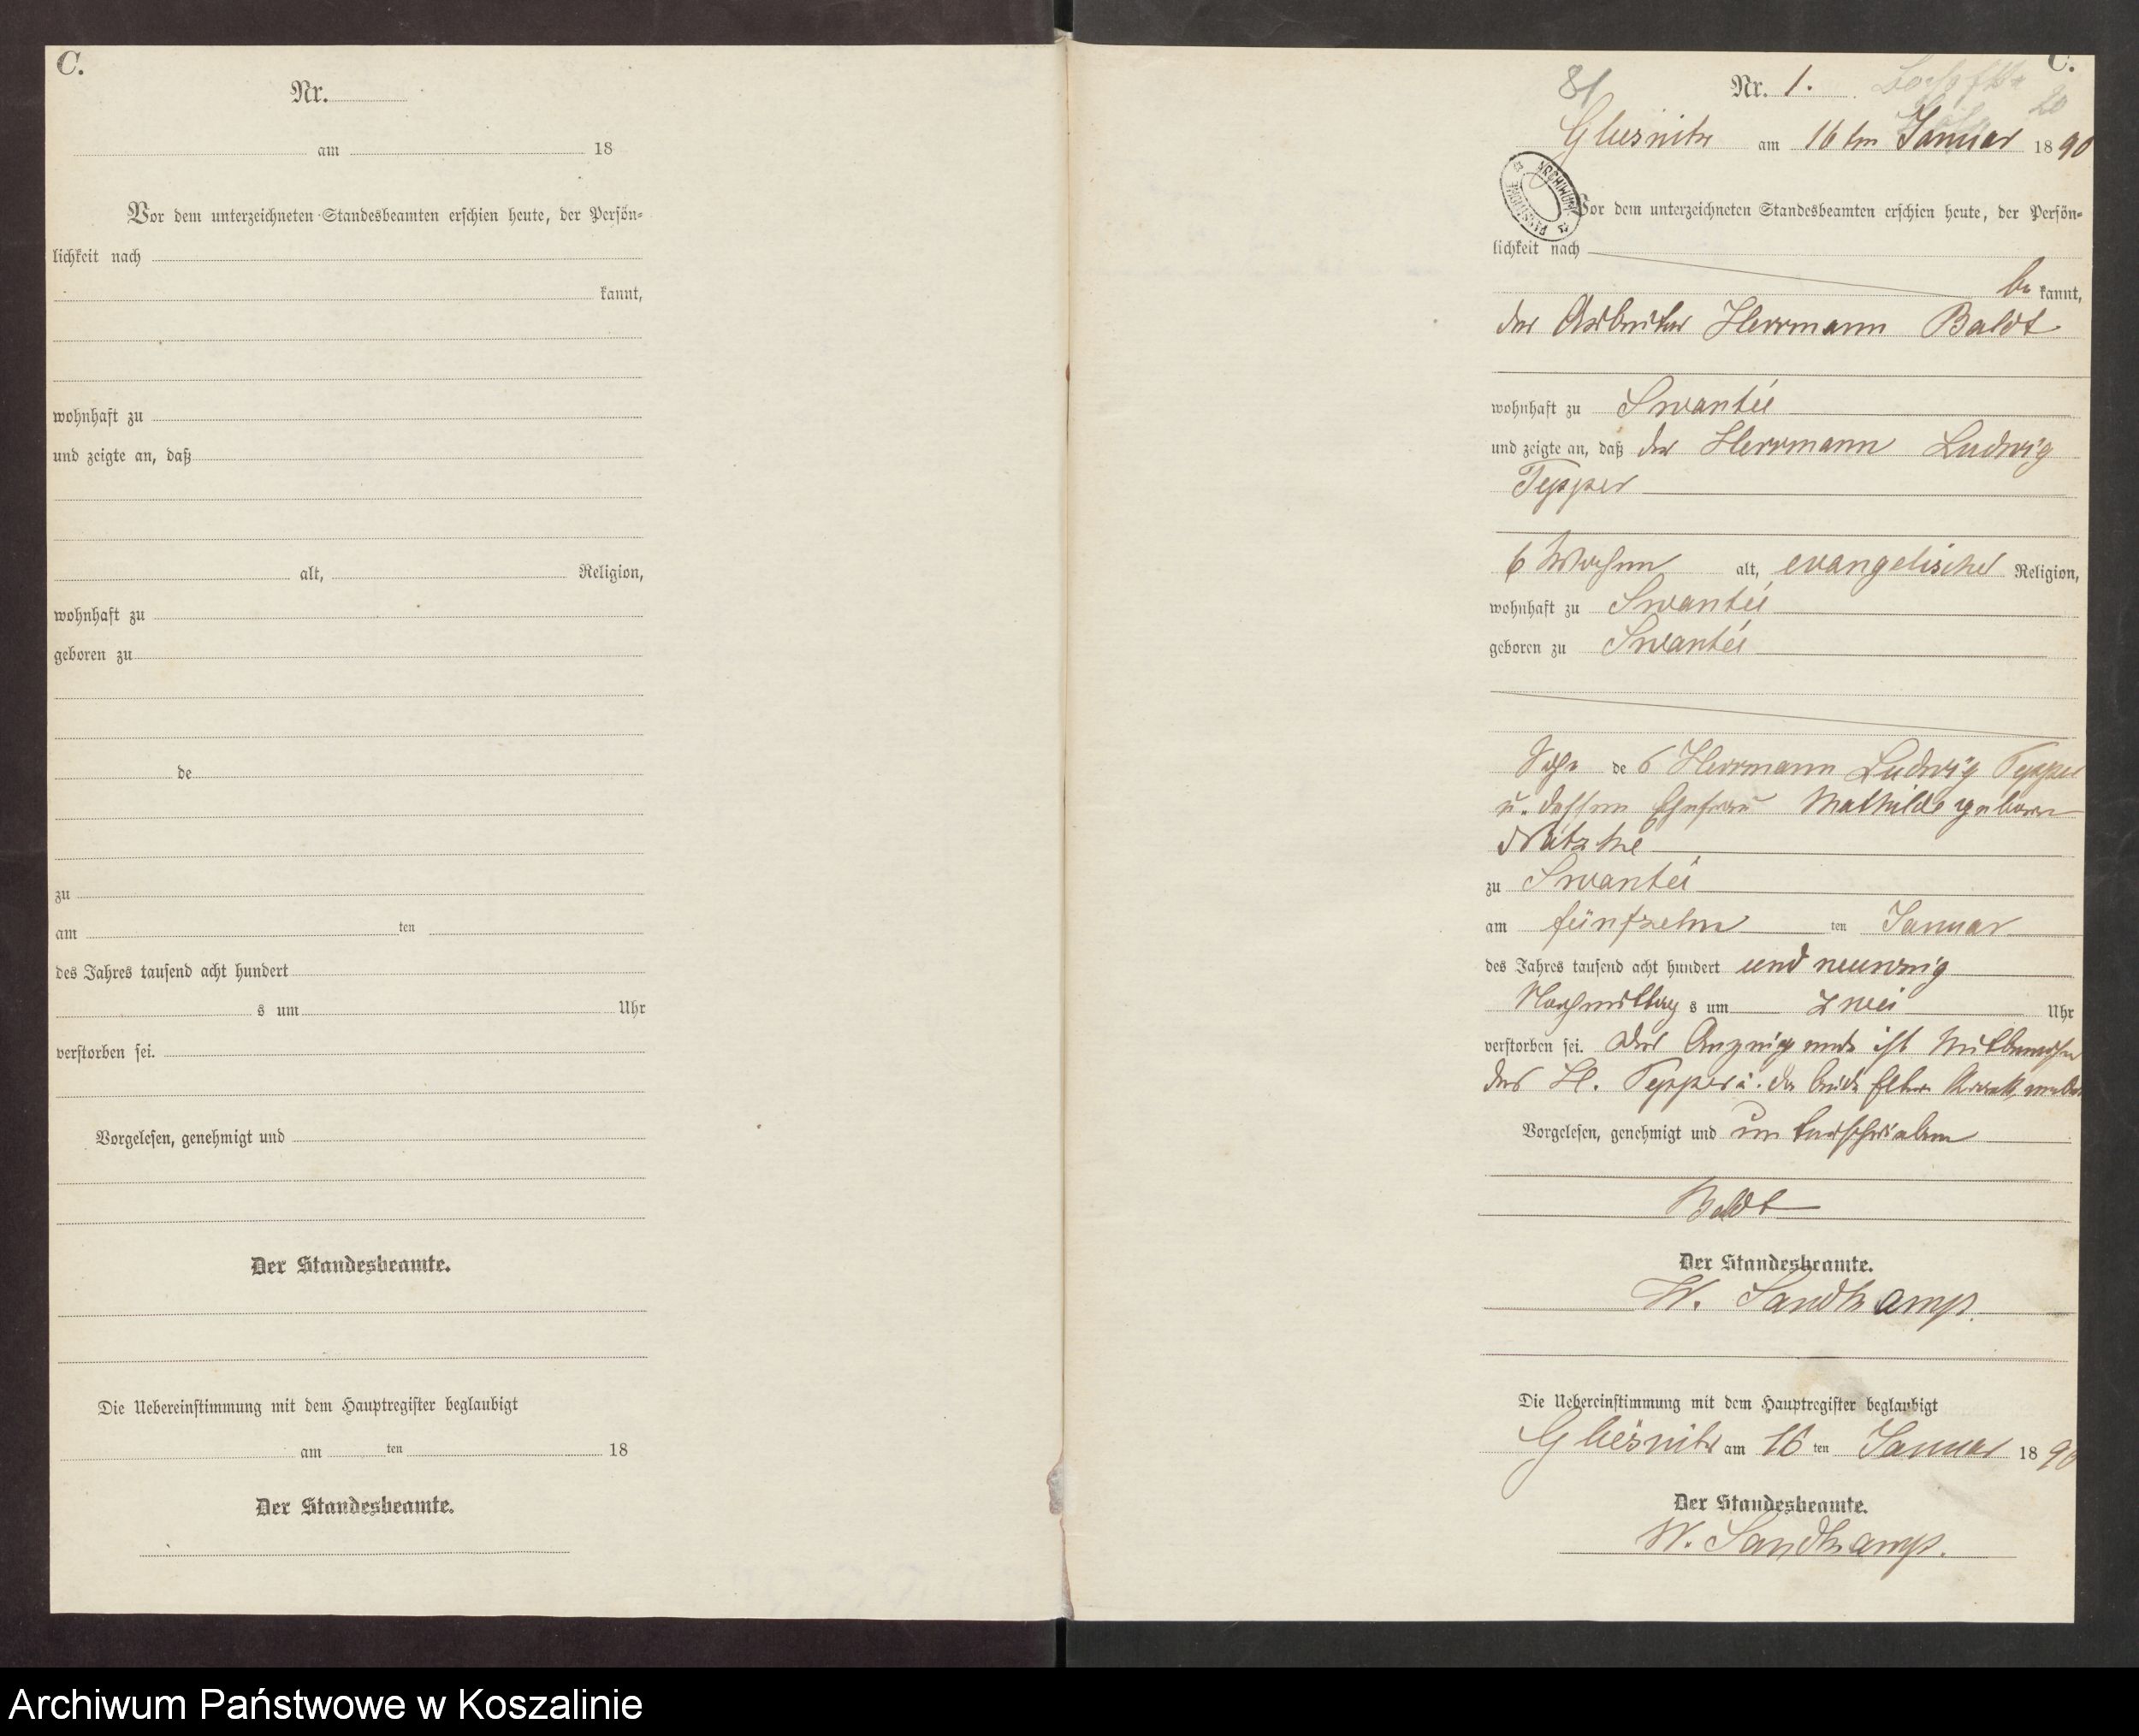 C.
Nr.
am 18
Vor dem unterzeichneten Standesbeamten erschien heute, der Persön=
lichkeit nach
kannt,
wohnhaft zu
und zeigte an, daß
alt, Religion,
wohnhaft zu
geboren zu
de
zu
am ten
des Jahres tausend acht hundert
s um Uhr
verstorben sei.
Vorgelesen, genehmigt und
Der Standesbeamte.
Die Uebereinstimmung mit dem Hauptregister beglaubigt
am ten 18
Der Standesbeamte.
C.
81 Nr. 1.
20
Gliesnitz am 16ten Januar 1890
ARCHIWUM PAŃSTWOWE
Vor dem unterzeichneten Standesbeamten erschien heute, der Persön=
lichkeit nach
be kannt,
der Arbeiter Herrmann Baldt
wohnhaft zu Swantei
und zeigte an, daß der Herrmann Ludwig
Tepper
6 Wochen alt, evangelischer Religion,
wohnhaft zu Swantei
geboren zu Swantei
Sohn des Herrmann Ludwig Tepper
u. dessen Ehefrau Mathilde geboren
zu Swantei
am fünfzehn ten Januar
des Jahres tausend acht hundert und neunzig
Nachmittag s um zwei Uhr
verstorben sei. Der Anzeigende ist Mitbewohner
des H. Tepper u. da beide Eltern krank,
Vorgelesen, genehmigt und unterschrieben
Baldt
Der Standesbeamte.
W. Sandkamp.
Die Uebereinstimmung mit dem Hauptregister beglaubigt
Gliesnitz am 16 ten Januar 1890
Der Standesbeamte.
W. Sandkamp.
Archiwum Państwowe w Koszalinie